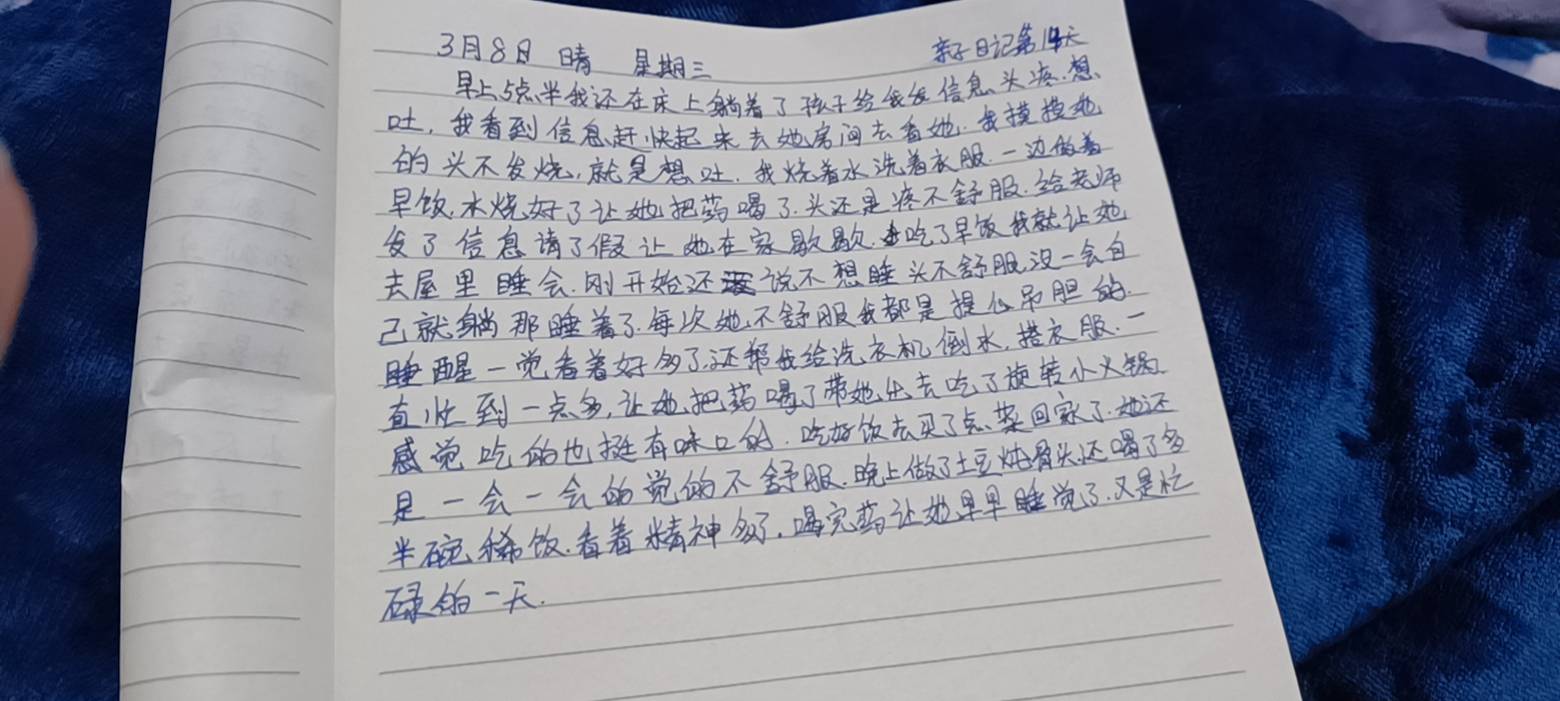 3月8日 晴 星期三 亲子日记第14天
早上5点半我还在床上躺着了孩子给我发信息头疼.想
吐,我看到信息赶快起来去她房间去看她.我摸摸她
的头不发烧,就是想吐.我烧着水洗着衣服.一边做着
早饭,水烧好了让她把药喝了.头还是疼不舒服.给老师
发了信息请了假让她在家歇歇.吃了早饭我就让她
去屋里睡会.刚开始还说不想睡头不舒服.没一会自
己就躺那睡着了.每次她不舒服我都是提心吊胆的.
睡醒一觉看着好多了,还帮我给洗衣机倒水,搭衣服.一
直忙到一点多,让她把药喝了带她出去吃了旋转小火锅
感觉吃的也挺有味口的.吃好饭去买了点菜回家了.她还
是一会一会的觉的不舒服.晚上做了土豆炖骨头还喝了多
半碗稀饭.看着精神多了.喝完药让她早早睡觉了.又是忙
碌的一天.